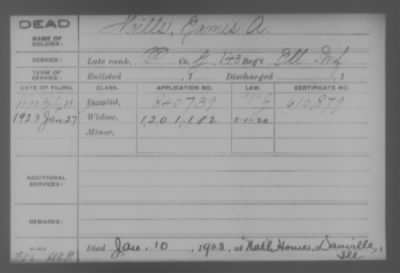 DEAD
NAME OF SOLDIER:
Mills, James A.
SERVICE:
Late rank, P Co. G, 143 Reg't Ill Inf
TERM OF SERVICE:
Enlisted , 1 Discharged , 1
DATE OF FILING. CLASS. APPLICATION NO. LAW. CERTIFICATE NO.
Invalid, 840,739 610,879
1923 Jan 27 Widow, 1201,182
Minor,
ADDITIONAL SERVICES:
REMARKS:
Died Jan. 10, 1922, at Natl. Home, Danville,
Ill.